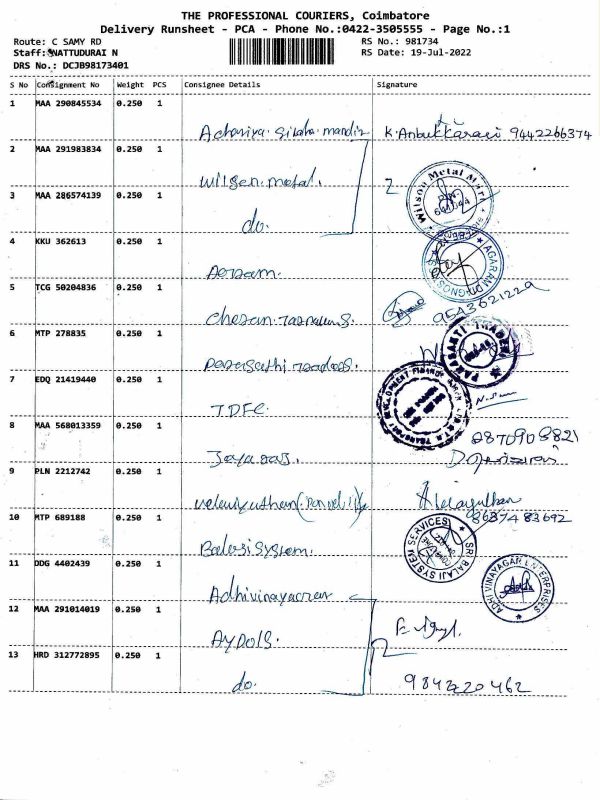 THE PROFESSIONAL COURIERS, Coimbatore
Delivery Runsheet - PCA - Phone No.:0422-3505555 - Page No.:1
Route: C SAMY RD
RS No.: 981734
Staff: NATTUDURAI N
RS Date: 19-Jul-2022
DRS No.: DCJB98173401
S No Consignment No Weight PCS Consignee Details Signature
1 MAA 290845534 0.250 1
K. Anbukkarasi 9442266374
2 MAA 291983834 0.250 1
Wilsen. metal.
Wilson Metal Mart
3 MAA 286574139 0.250 1
do.
4 KKU 362613 0.250 1
AGARAM DIAGNOSTIC
5 TCG 50204836 0.250 1
9543621229
6 MTP 278835 0.250 1
PARASAKTI TRADERS
7 EDQ 21419440 0.250 1
TDFC.
8 MAA 568013359 0.250 1
Jayaraj.
9 PLN 2212742 0.250 1
8637483692
10 MTP 689188 0.250 1
Balaji System.
SRI BALAJI SYSTEM SERVICES
11 DDG 4402439 0.250 1
Adhivinayagar
ADHI VINAYAGAR ENTERPRISES
12 MAA 291014019 0.250 1
13 HRD 312772895 0.250 1
do.
9842220462